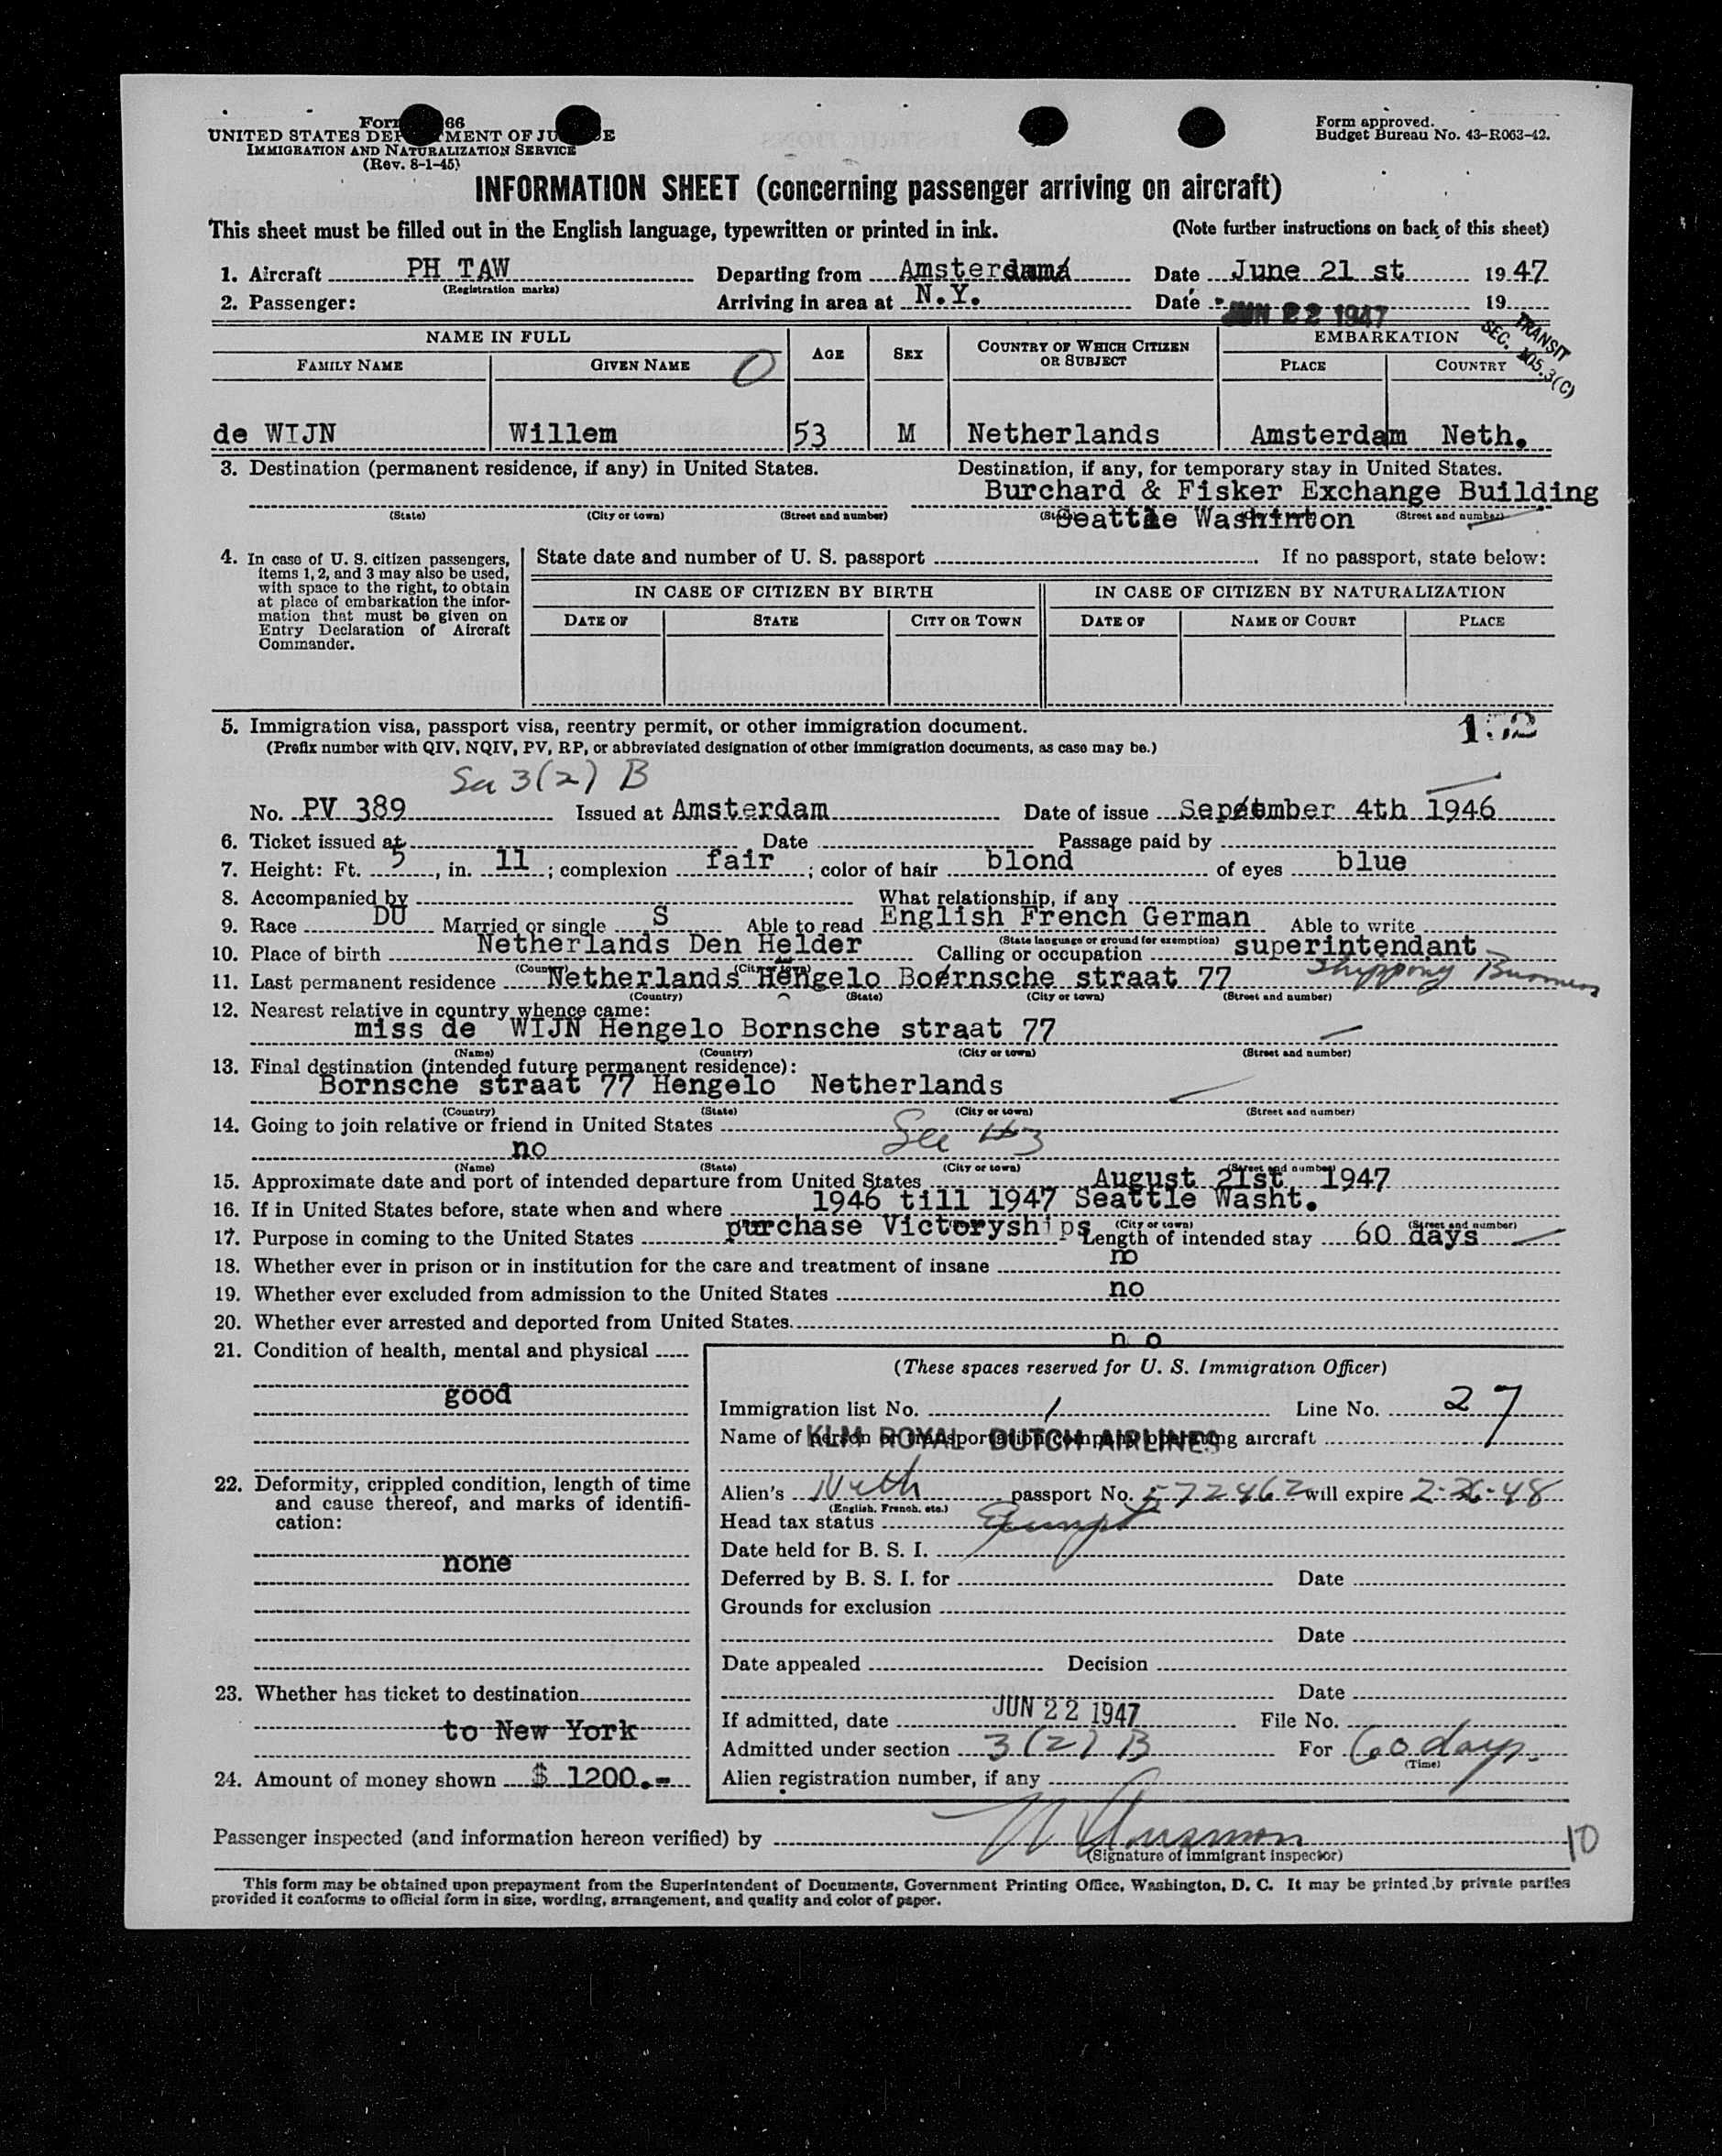 For 66
UNITED STATES DEP MENT OF JU E
IMMIGRATION AND NATURALIZATION SERVICE
(Rev. 8-1-45)
Form approved.
Budget Bureau No. 43-R063-42.
INFORMATION SHEET (concerning passenger arriving on aircraft)
This sheet must be filled out in the English language, typewritten or printed in ink. (Note further instructions on back of this sheet)
1. Aircraft PH TAW Departing from Amsterdam Date June 21 st 1947
(Registration marks)
2. Passenger: Arriving in area at N.Y. Date JUN 22 1947 19
TRANSIT
SEC. 105.3(C)
NAME IN FULL AGE SEX COUNTRY OF WHICH CITIZEN OR SUBJECT EMBARKATION
FAMILY NAME GIVEN NAME O PLACE COUNTRY
de WIJN Willem 53 M Netherlands Amsterdam Neth.
3. Destination (permanent residence, if any) in United States. Destination, if any, for temporary stay in United States.
Burchard & Fisker Exchange Building
(State) (City or town) (Street and number) Seattle Washinton (Street and number)
4. In case of U. S. citizen passengers, items 1, 2, and 3 may also be used, with space to the right, to obtain at place of embarkation the information that must be given on Entry Declaration of Aircraft Commander.
State date and number of U. S. passport If no passport, state below:
IN CASE OF CITIZEN BY BIRTH IN CASE OF CITIZEN BY NATURALIZATION
DATE OF STATE CITY OR TOWN DATE OF NAME OF COURT PLACE
5. Immigration visa, passport visa, reentry permit, or other immigration document.
(Prefix number with QIV, NQIV, PV, RP, or abbreviated designation of other immigration documents, as case may be.)
3(2) B
No. PV 389 Issued at Amsterdam Date of issue September 4th 1946
6. Ticket issued at Date Passage paid by
7. Height: Ft. 5, in. 11; complexion fair; color of hair blond of eyes blue
8. Accompanied by What relationship, if any
9. Race DU Married or single S Able to read English French German Able to write
(State language or ground for exemption)
10. Place of birth Netherlands Den Helder Calling or occupation superintendant
(Country) (City or town) Shipping Business
11. Last permanent residence Netherlands Hengelo Boernsche straat 77
(Country) (State) (City or town) (Street and number)
12. Nearest relative in country whence came:
miss de WIJN Hengelo Bornsche straat 77
(Name) (Country) (City or town) (Street and number)
13. Final destination (intended future permanent residence):
Bornsche straat 77 Hengelo Netherlands
(Country) (State) (City or town) (Street and number)
14. Going to join relative or friend in United States See #3
no
(Name) (State) (City or town) (Street and number)
15. Approximate date and port of intended departure from United States August 21st 1947
16. If in United States before, state when and where 1946 till 1947 Seattle Washt.
(City or town) (Street and number)
17. Purpose in coming to the United States purchase Victoryships Length of intended stay 60 days
18. Whether ever in prison or in institution for the care and treatment of insane no
19. Whether ever excluded from admission to the United States no
20. Whether ever arrested and deported from United States.
n o
21. Condition of health, mental and physical
good
22. Deformity, crippled condition, length of time and cause thereof, and marks of identification:
none
23. Whether has ticket to destination
to New York
24. Amount of money shown $ 1200.-
(These spaces reserved for U. S. Immigration Officer)
Immigration list No. 1 Line No. 27
Name of person or transportation company operating aircraft
KLM ROYAL DUTCH AIRLINES
Alien's Neth passport No. 572462 will expire 2-26-48
(English, French, etc.)
Head tax status Exempt
Date held for B. S. I.
Deferred by B. S. I. for Date
Grounds for exclusion
Date
Date appealed Decision
Date
If admitted, date JUN 22 1947 File No.
Admitted under section 3(2) B For 60 days.
(Time)
Alien registration number, if any
Passenger inspected (and information hereon verified) by
(Signature of immigrant inspector) 10
This form may be obtained upon prepayment from the Superintendent of Documents, Government Printing Office, Washington, D. C. It may be printed by private parties
provided it conforms to official form in size, wording, arrangement, and quality and color of paper.